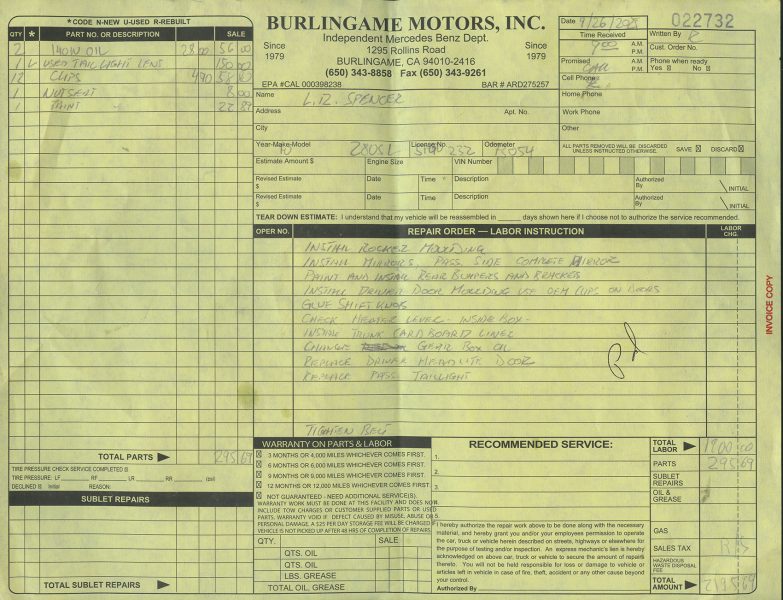 *CODE N-NEW U-USED R-REBUILT
QTY * PART NO. OR DESCRIPTION SALE
2 140W OIL 28 00 56 00
1 U USED TAIL LIGHT LENS 150 00
12 CLIPS 4 90 58 80
1 NUTSERT 8 00
1 PAINT 22 89
TOTAL PARTS 295.69
TIRE PRESSURE CHECK SERVICE COMPLETED
TIRE PRESSURE: LF RF LR RR (psi)
DECLINED Initial REASON:
SUBLET REPAIRS
TOTAL SUBLET REPAIRS
BURLINGAME MOTORS, INC.
Independent Mercedes Benz Dept.
Since 1979
1295 Rollins Road
Since 1979
BURLINGAME, CA 94010-2416
(650) 343-8858 Fax (650) 343-9261
EPA #CAL 000398238 BAR # ARD275257
Date 9/26/
022732
Time Received A.M. P.M.
Written By
Cust. Order No.
Promised A.M. P.M.
Phone when ready
Yes No
Cell Phone
Name L.R. SPENCER
Home Phone
Address Apt. No.
Work Phone
City
Other
Year-Make-Model 70 280SL License No. 232 Odometer
ALL PARTS REMOVED WILL BE DISCARDED UNLESS INSTRUCTED OTHERWISE. SAVE DISCARD
Estimate Amount $ Engine Size VIN Number
Revised Estimate $ Date Time Description Authorized By INITIAL
Revised Estimate $ Date Time Description Authorized By INITIAL
TEAR DOWN ESTIMATE: I understand that my vehicle will be reassembled in ______ days shown here if I choose not to authorize the service recommended.
OPER NO. REPAIR ORDER — LABOR INSTRUCTION LABOR CHG.
INSTALL ROCKER MOULDING
INSTALL MIRRORS, PASS SIDE COMPLETE MIRROR
PAINT AND INSTALL REAR BUMPERS AND BRACKETS
INSTALL DRIVER DOOR MOULDING USE OEM CLIPS ON DOORS
GLUE SHIFT KNOB
CHECK HEATER LEVER - INSIDE BOX -
INSTALL TRUNK CARDBOARD LINER
CHANGE GEAR BOX OIL
REPLACE DRIVER HEADLITE DOOR
REPLACE PASS TAILLIGHT
TIGHTEN BELT
INVOICE COPY
WARRANTY ON PARTS & LABOR
3 MONTHS OR 4,000 MILES WHICHEVER COMES FIRST.
6 MONTHS OR 6,000 MILES WHICHEVER COMES FIRST.
9 MONTHS OR 9,000 MILES WHICHEVER COMES FIRST.
12 MONTHS OR 12,000 MILES WHICHEVER COMES FIRST.
NOT GUARANTEED - NEED ADDITIONAL SERVICE(S).
WARRANTY WORK MUST BE DONE AT THIS FACILITY AND DOES NOT
INCLUDE TOW CHARGES OR CUSTOMER SUPPLIED PARTS OR USED
PARTS. WARRANTY VOID IF - DEFECT CAUSED BY MISUSE, ABUSE OR
PERSONAL DAMAGE. A $25 PER DAY STORAGE FEE WILL BE CHARGED IF
VEHICLE IS NOT PICKED UP AFTER 48 HRS OF COMPLETION OF REPAIRS.
QTY. SALE
QTS. OIL
QTS. OIL
LBS. GREASE
TOTAL OIL, GREASE
RECOMMENDED SERVICE:
1.
2.
3.
4.
5.
I hereby authorize the repair work above to be done along with the necessary
material, and hereby grant you and/or your employees permission to operate
the car, truck or vehicle herein described on streets, highways or elsewhere for
the purpose of testing and/or inspection. An express mechanic's lien is hereby
acknowledged on above car, truck or vehicle to secure the amount of repairs
thereto. You will not be held responsible for loss or damage to vehicle or
articles left in vehicle in case of fire, theft, accident or any other cause beyond
your control.
Authorized By
TOTAL LABOR 1800.00
PARTS 295.69
SUBLET REPAIRS
OIL & GREASE
GAS
SALES TAX
HAZARDOUS WASTE DISPOSAL FEE
TOTAL AMOUNT